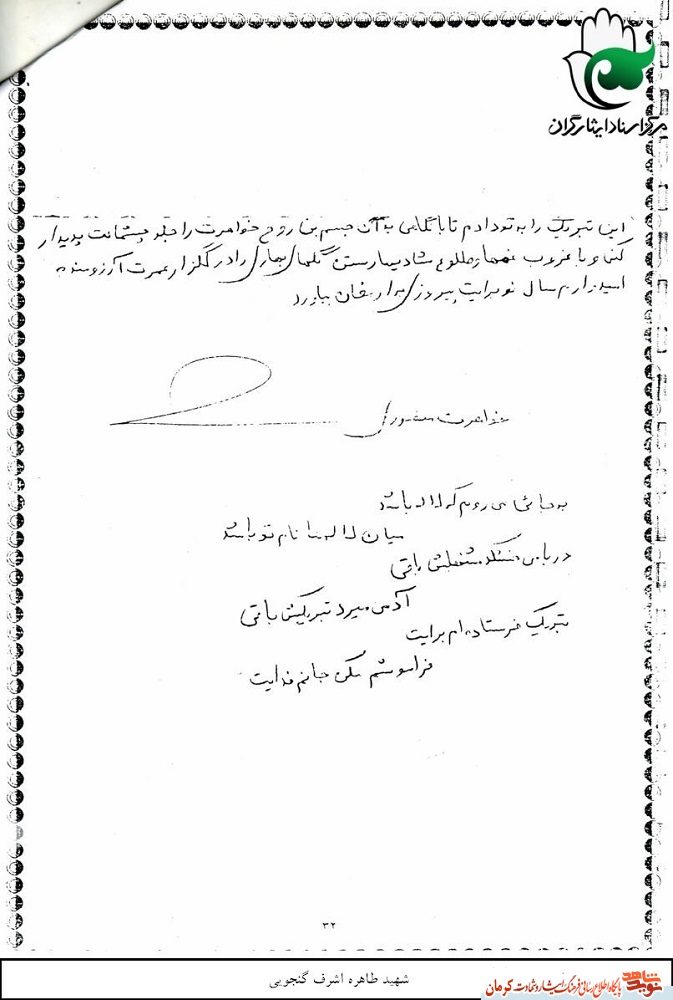 مرکز اسناد ایثارگران
این تبریک را به تو دادم تا با نگاهی به آن جسم بی روح خواهرت را جلو چشمانت پدیدار
کنی و با غروب غمها و طلوع شادیها رستن گلهای بهاری را در گلزار عمرت آرزومندم
امیدوارم سال نو برایت پیروزی به ارمغان بیاورد
خواهرت
به جائی می روم که لاله باشد
میان لاله ها نام تو باشد
دریا می خشکد مشغلش باقی
آدمی میرد تبریکش باقی
تبریک فرستاده ام برایت
فراموشم مکن جانم فدایت
۳۲
شهید طاهره اشرف گنجویی
نوید شاهد
پایگاه اطلاع رسانی فرهنگ ایثار و شهادت کرمان